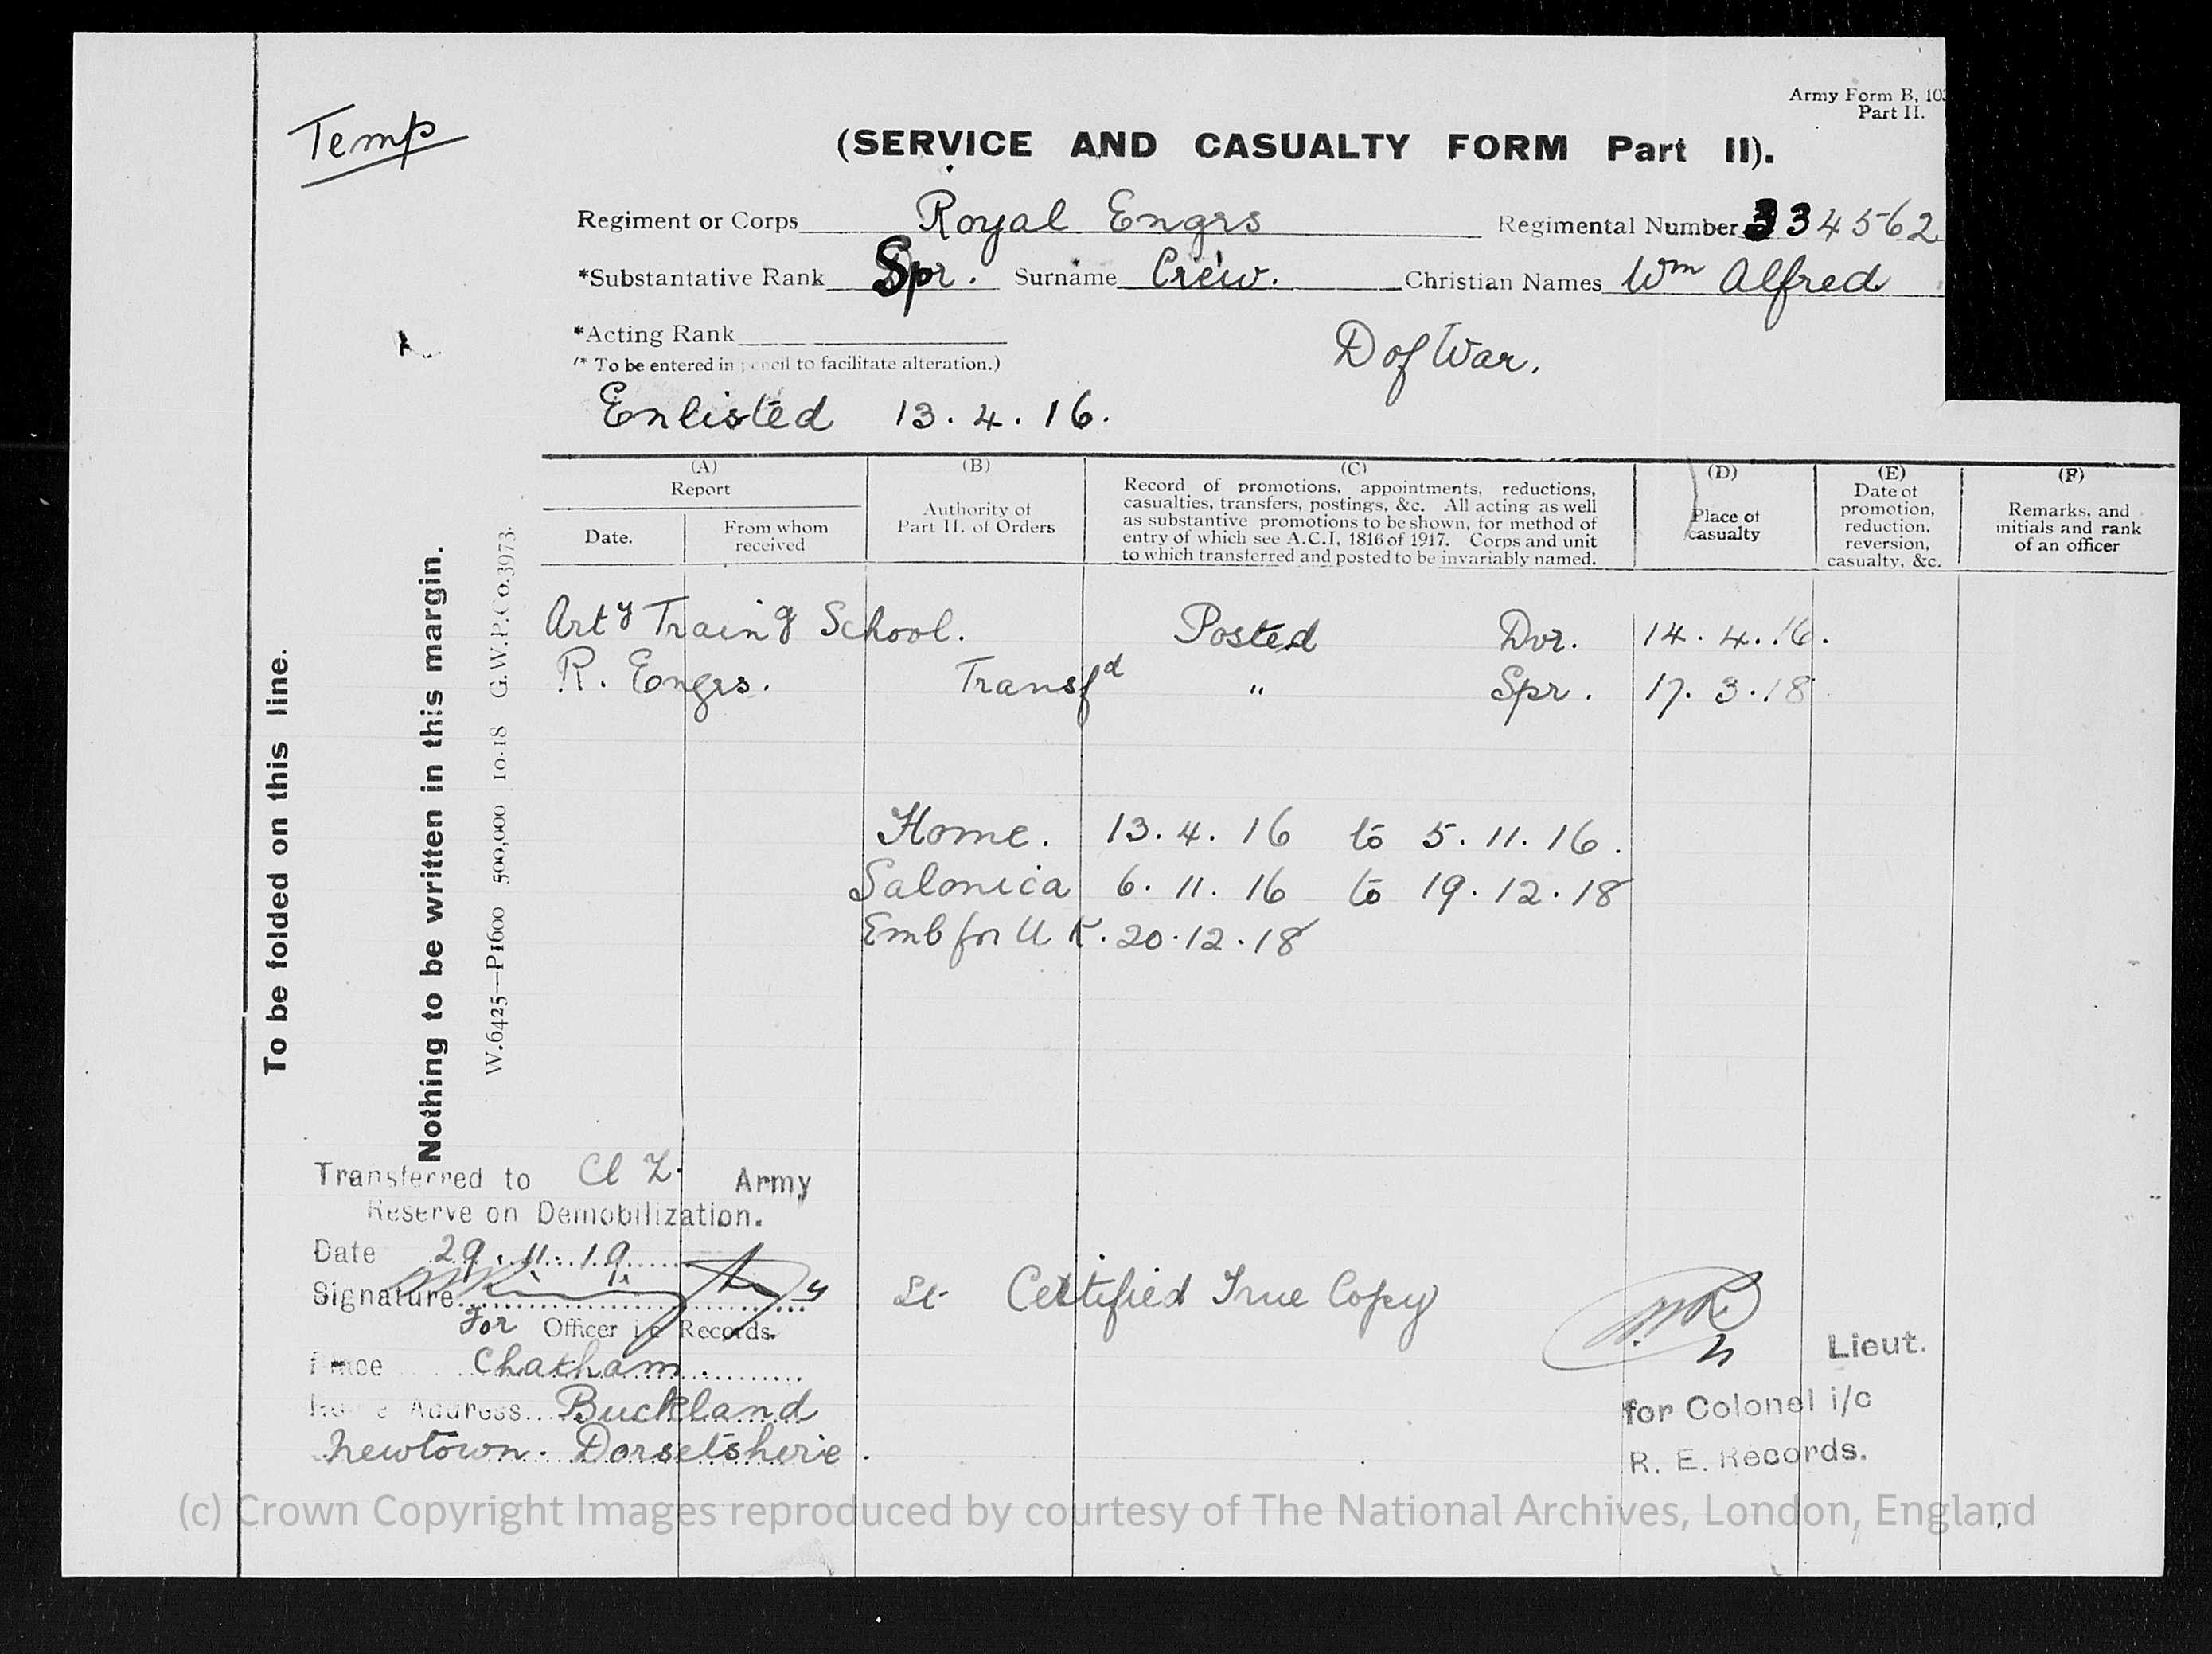 Army Form B, 103
Part II.
Temp
(SERVICE AND CASUALTY FORM Part II).
Regiment or Corps Royal Engrs Regimental Number 334562
*Substantative Rank Spr. Surname Crew. Christian Names Wm Alfred
*Acting Rank
(* To be entered in pencil to facilitate alteration.)
D of War.
Enlisted 13.4.16.
(A) (B) (C) (D) (E) (F)
Report
Date.
From whom
received
Authority of
Part II. of Orders
Record of promotions, appointments, reductions,
casualties, transfers, postings, &c. All acting as well
as substantive promotions to be shown, for method of
entry of which see A.C.I, 1816 of 1917. Corps and unit
to which transferred and posted to be invariably named.
Place of
casualty
Date of
promotion,
reduction,
reversion,
casualty, &c.
Remarks, and
initials and rank
of an officer
Arty Traing School. Posted Dvr. 14.4.16.
R. Engrs. Transfd " Spr. 17.3.18
Home. 13.4.16 to 5.11.16.
Salonica 6.11.16 to 19.12.18
Emb for U.K. 20.12.18
To be folded on this line.
Nothing to be written in this margin.
W.6425—P1600 500,000 10.18 G.W.P.Co.3973.
Transferred to Cl Z. Army
Reserve on Demobilization.
Date 29.11.19
Signature Lt Certified True Copy
For Officer i/c Records.
Lieut.
Place Chatham.
Home Address Buckland
for Colonel i/c
Newtown. Dorsetsherie.
R. E. Records.
(c) Crown Copyright Images reproduced by courtesy of The National Archives, London, England